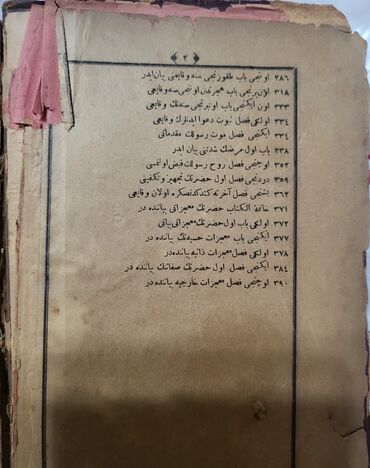 ﴿ ٢ ﴾
٢٨٦ اونجی باب طقوزنجی سنه وقایعنی بیان ایدر
٣١٨ اون برنجی باب هجرتك اونجی سنه وقایعی
٣٣٣ اون ایکنجی باب اونبرنجی سنه‌نك وقایعی
٣٣٤ اولکی فصل نبوت دعوا ایدنلرك وقایعی
٣٣٤ ایکنجی فصل موت رسولك مقدماتی
٣٣٨ باب اول مرضك شدتنی بیان ایدر
٣٥٢ اوچنجی فصل روح رسولك قبض اولنمسی
٣٥٩ دردنجی فصل اول حضرتك تجهیز و تکفینی
٣٦٣ بشنجی فصل آخرته کتدکدنصکره اولان وقایعی
٣٧١ خاتمة الکتاب حضرتك معجزاتی بیاننده در
٣٧٢ اولکی باب اول حضرتك معجزاتی بیانی
٣٧٧ ایکنجی باب معجزات حسیه‌نك بیاننده در
٣٧٨ اولکی فصل معجزات ذاتیه بیاننده در
٣٨٤ ایکنجی فصل اول حضرتك صفاتنك بیاننده در
٣٩٠ اوچنجی فصل معجزات خارجیه بیاننده در